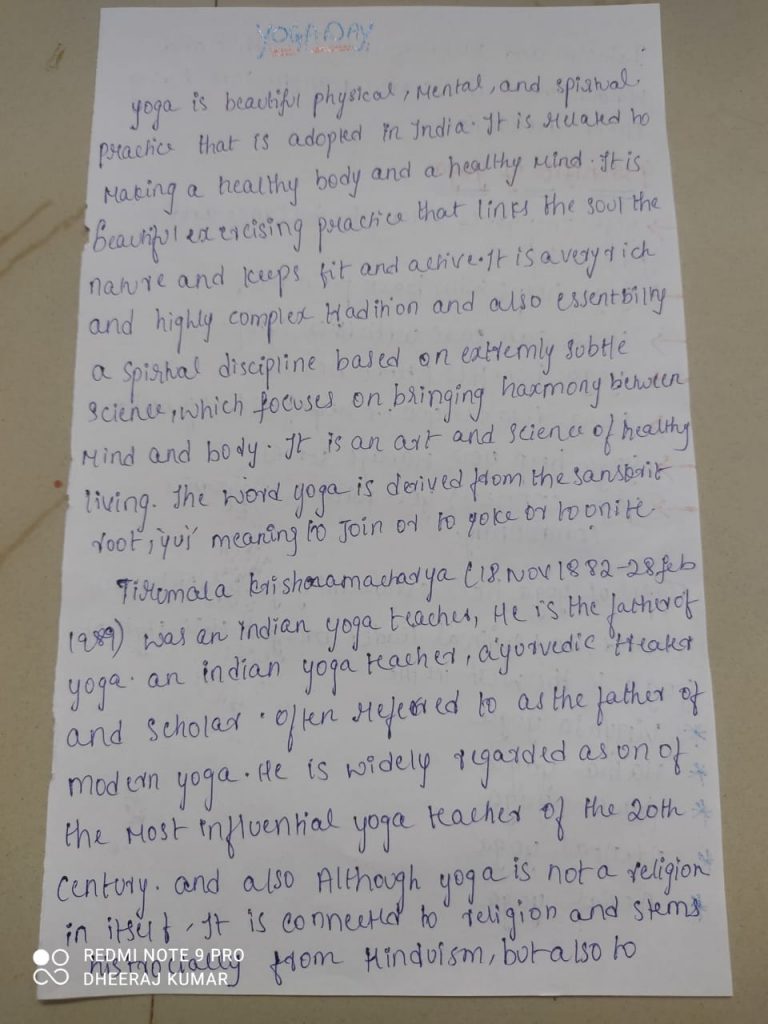 YOGA DAY
yoga is beautiful physical, Mental, and spirtual
practice that is adopted in India. It is related to
Making a healthy body and a healthy Mind. It is
beautiful exercising practice that links the soul the
nature and keeps fit and active. It is a very rich
and highly complex tradition and also essentbilly
a spirtual discipline based on extremly subtle
science, which focuses on bringing harmony between
Mind and body. It is an art and science of healthy
living. The word yoga is derived from the sanskrit
root, 'yuj' meaning to Join or to yoke or to onite.
Tirumala krishnamacharya (18.Nov 1882-28 feb
1989) was an indian yoga teacher, He is the father of
yoga. an indian yoga teacher, ayurvedic treaker
and scholar. often refeered to as the father of
modern yoga. He is widely regarded as on of
the Most influential yoga teacher of the 20th
Century. and also Although yoga is not a religion
in itself, It is connected to religion and stems
histrocially from Hinduism, but also to
REDMI NOTE 9 PRO
DHEERAJ KUMAR